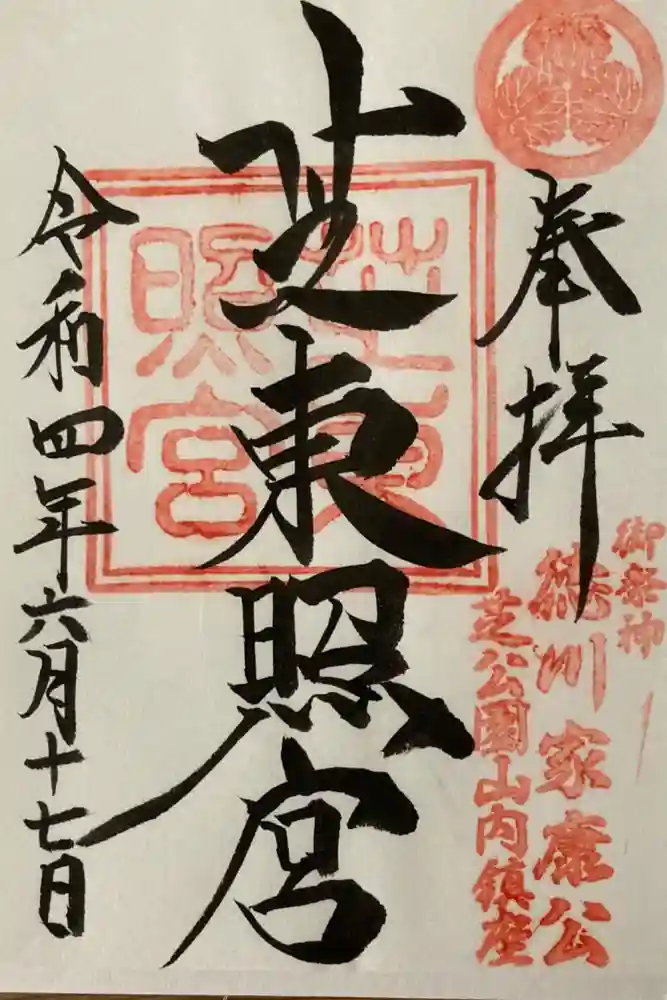 奉拝
御祭神
徳川家康公
芝公園山内鎮座
芝東照宮
芝東
照宮
令和四年六月十七日